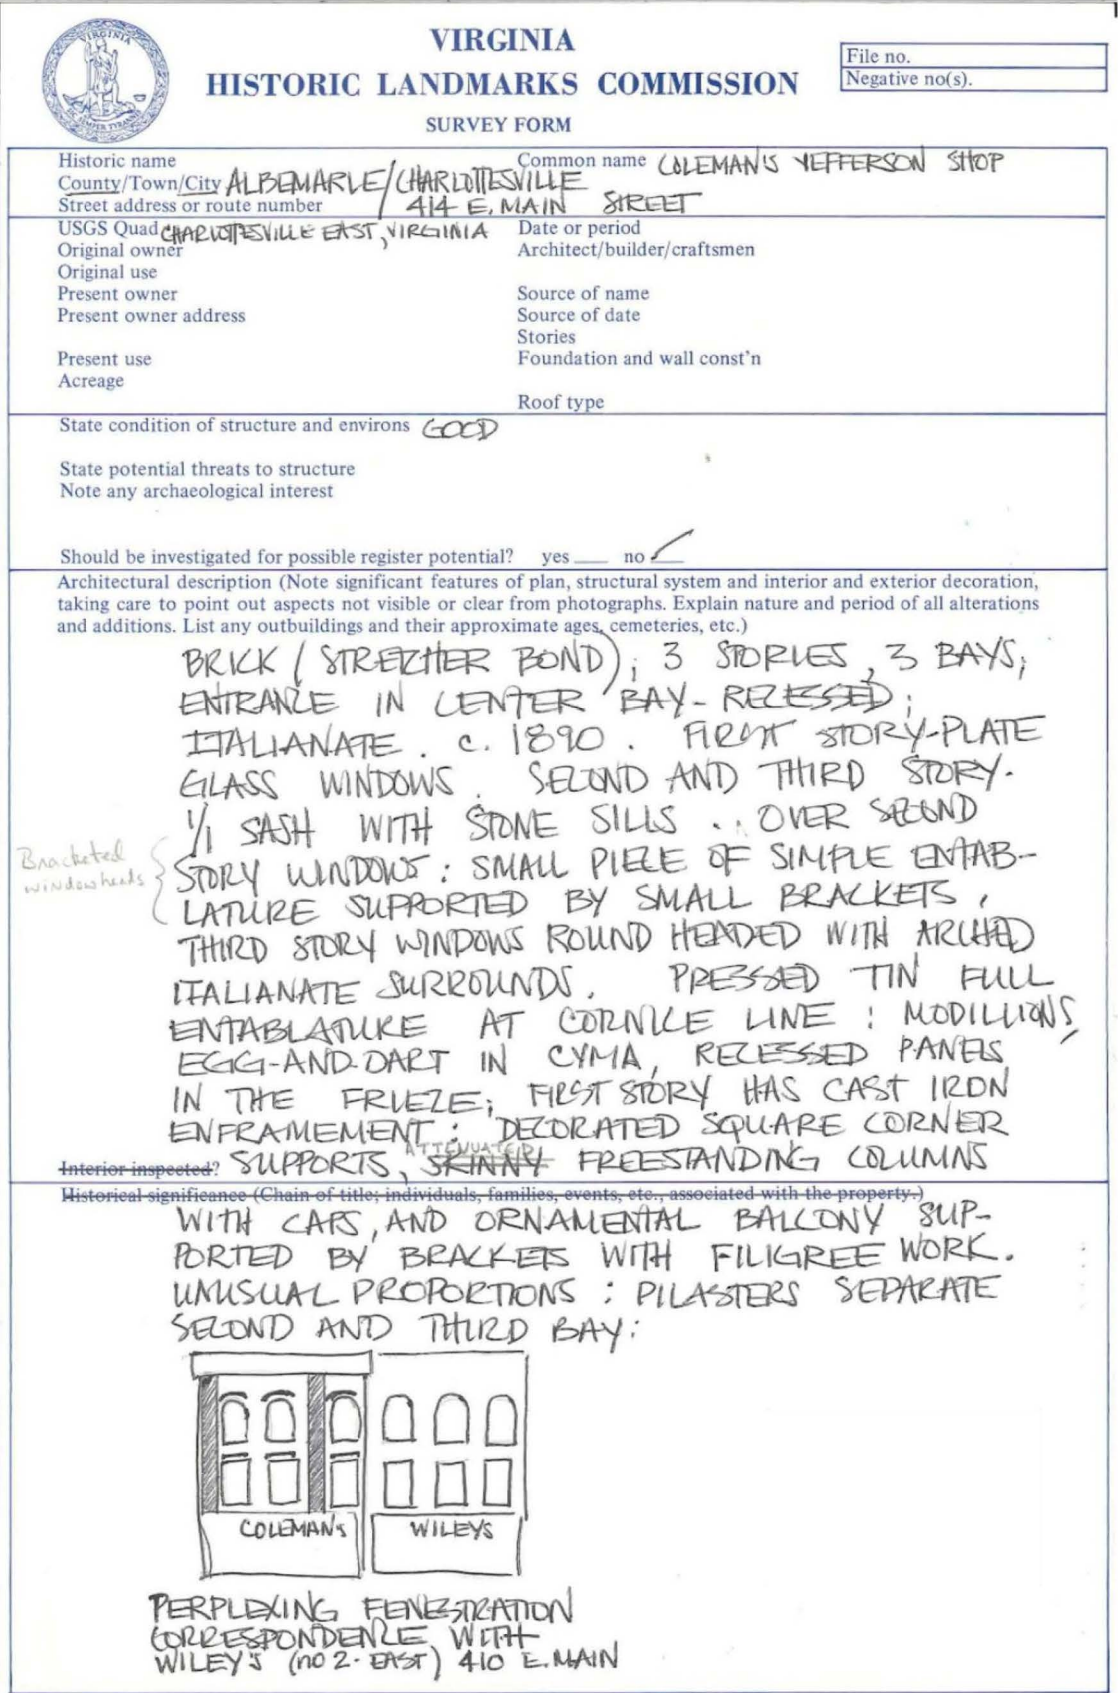 VIRGINIA
HISTORIC LANDMARKS COMMISSION
SURVEY FORM
File no.
Negative no(s).
Historic name
Common name COLEMAN'S JEFFERSON SHOP
County/Town/City ALBEMARLE/CHARLOTTESVILLE
Street address or route number 414 E. MAIN STREET
USGS Quad CHARLOTTESVILLE EAST, VIRGINIA
Date or period
Original owner
Architect/builder/craftsmen
Original use
Present owner
Source of name
Present owner address
Source of date
Stories
Present use
Foundation and wall const'n
Acreage
Roof type
State condition of structure and environs GOOD
State potential threats to structure
Note any archaeological interest
Should be investigated for possible register potential? yes no ✓
Architectural description (Note significant features of plan, structural system and interior and exterior decoration,
taking care to point out aspects not visible or clear from photographs. Explain nature and period of all alterations
and additions. List any outbuildings and their approximate ages, cemeteries, etc.)
BRICK (STRETCHER BOND); 3 STORIES, 3 BAYS;
ENTRANCE IN CENTER BAY - RECESSED;
ITALIANATE. c. 1890. FIRST STORY-PLATE
GLASS WINDOWS. SECOND AND THIRD STORY-
1/1 SASH WITH STONE SILLS .. OVER SECOND
Bracketed
windowheads
STORY WINDOWS: SMALL PIECE OF SIMPLE ENTAB-
LATURE SUPPORTED BY SMALL BRACKETS,
THIRD STORY WINDOWS ROUND HEADED WITH ARCHED
ITALIANATE SURROUNDS. PRESSED TIN FULL
ENTABLATURE AT CORNICE LINE: MODILLIONS,
EGG-AND-DART IN CYMA, RECESSED PANELS
IN THE FRIEZE; FIRST STORY HAS CAST IRON
ENFRAMEMENT: DECORATED SQUARE CORNER
ATTENUATED
Interior inspected? SUPPORTS, SKINNY FREESTANDING COLUMNS
Historical significance (Chain of title; individuals, families, events, etc., associated with the property.)
WITH CAPS, AND ORNAMENTAL BALCONY SUP-
PORTED BY BRACKETS WITH FILIGREE WORK.
UNUSUAL PROPORTIONS: PILASTERS SEPARATE
SECOND AND THIRD BAY:
COLEMANS
WILEYS
PERPLEXING FENESTRATION
CORRESPONDENCE WITH
WILEY'S (no 2. EAST) 410 E. MAIN